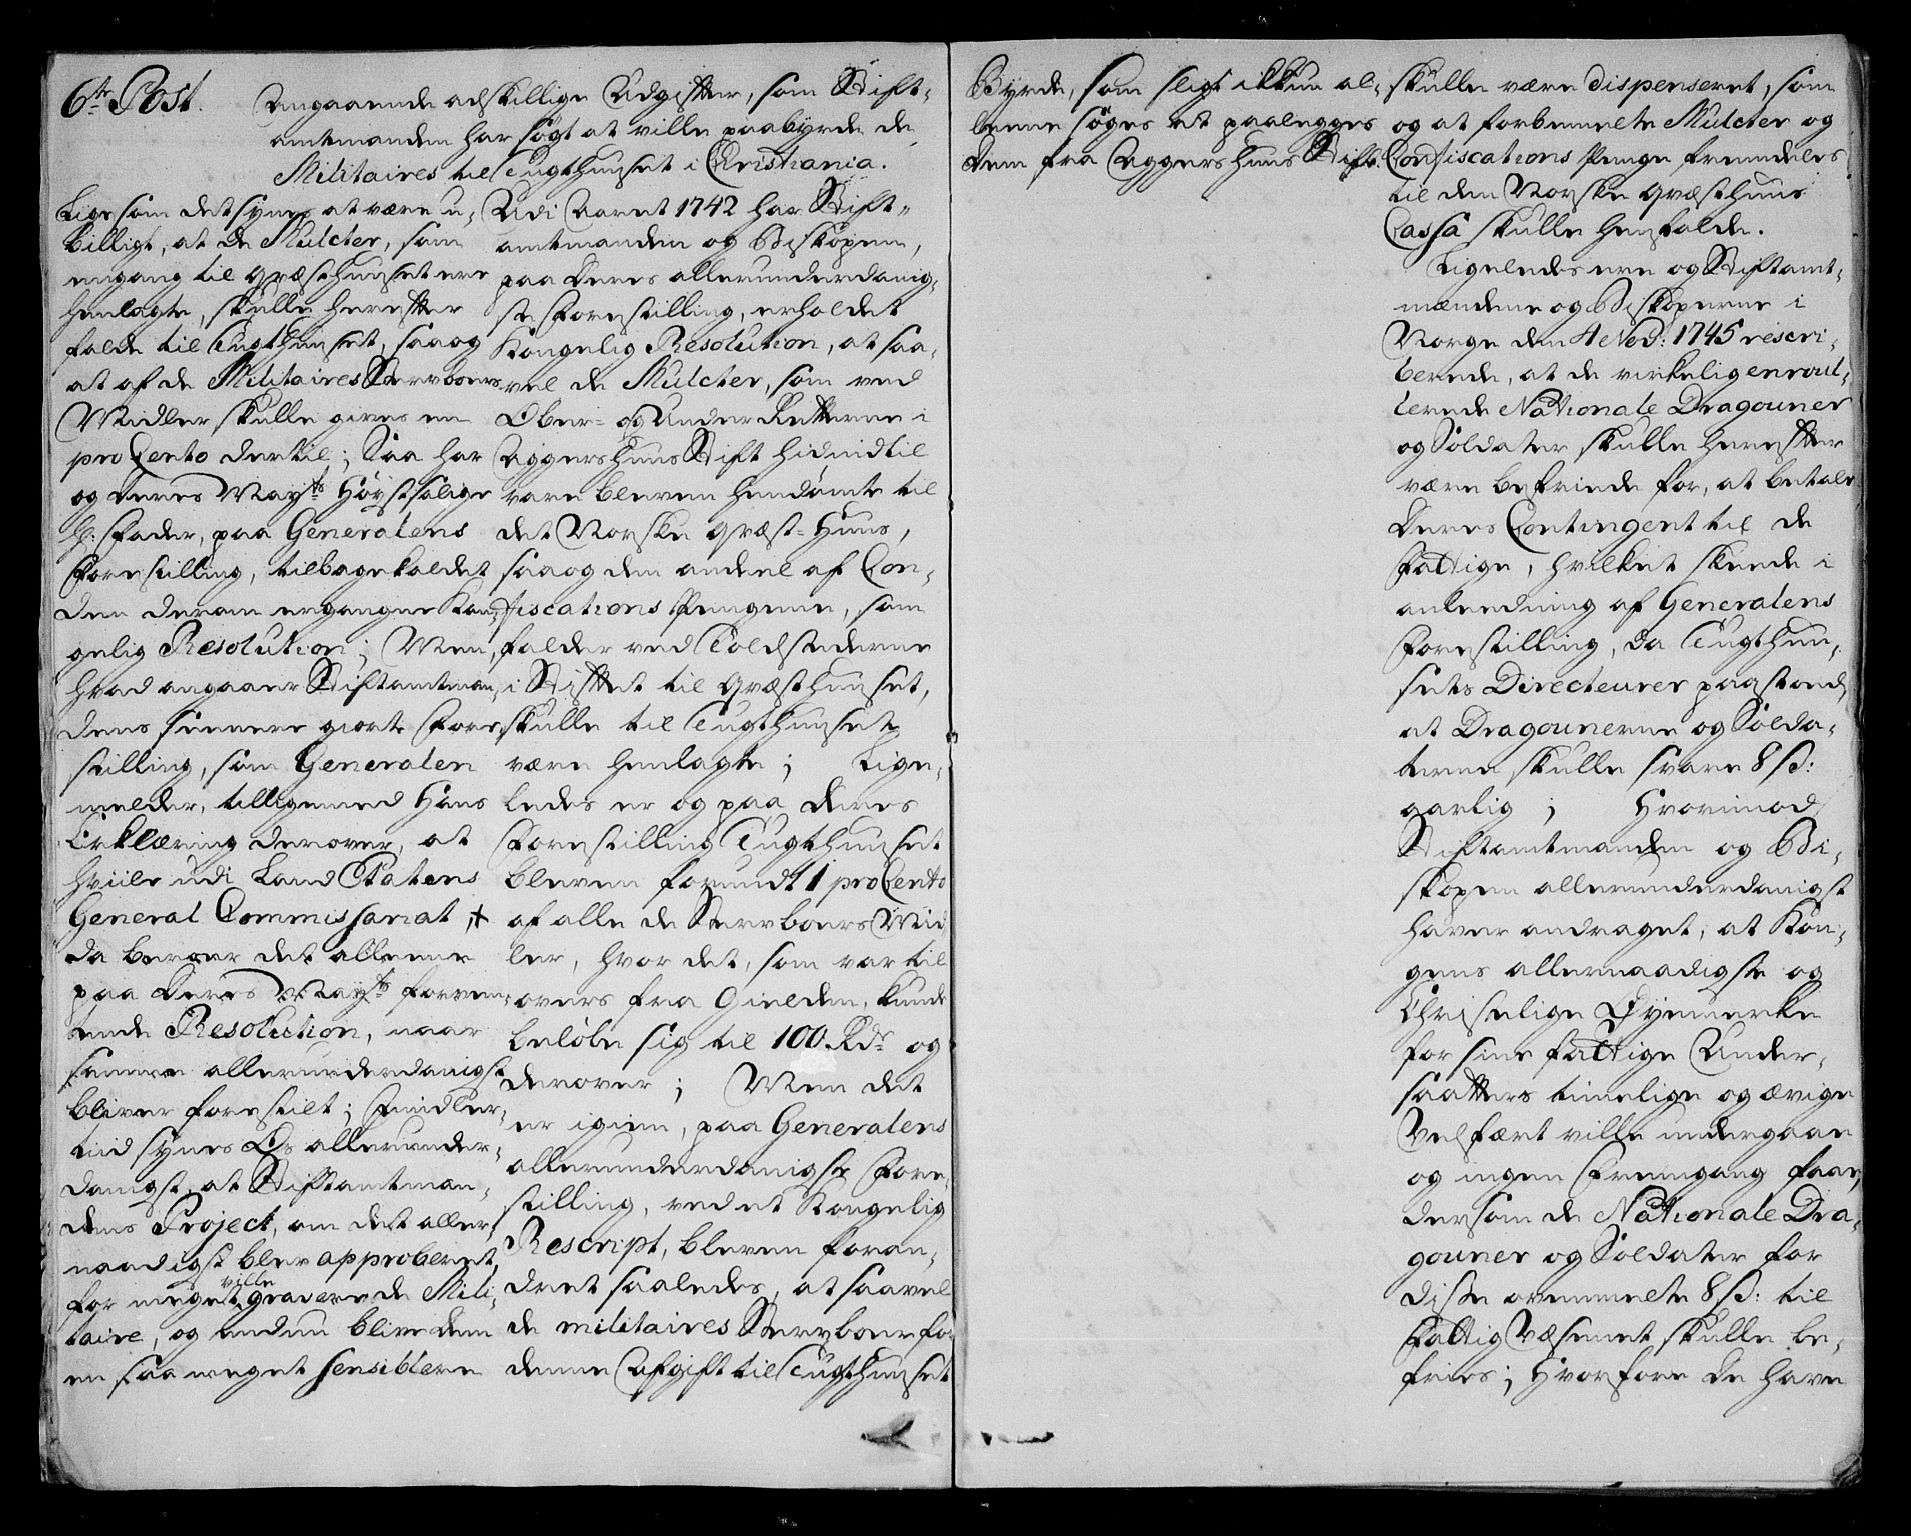 6te Post.
Angaaende adskillige Udgifter, som Stift-
amtmanden har søgt at ville paabyrde de
Militaires til Tugthuuset i Christiania.
Ligesom det synes at være u-
billigt, at de Mulcter, som
engang til Qvæsthuuset ere
henlagte, skulle herefter
falde til Tugthuuset, saa og
at af de Militaires Stervboers
Midler skulle gives en
pro Cento dertil; Saa har
og Deres Mayts Høystsalige
H: Fader, paa Generalens
Forestilling, tilbagekaldet
den derom ergangne Kon-
gelig Resolution; Men,
hvad angaaer Stiftamtman-
dens sennere giorte Fore-
stilling, som Generalen
melder, tilligemed hans
Erklæring derover, at
hviile udi Land Etatens
General Commissariat, +
da beroer det alleene
paa Deres Mayts forven-
tende Resolution, naar
samme allerunderdanigst
bliver forestilt; Imidler-
tiid synes Os allerunder-
danigst, at Stiftamtman-
dens Project, om det aller-
naadigst blev approberet,
ville
for meget gravere de Mili-
taire, og endnu blive dem
en saa meget sensiblere
Udi Aaret 1742 har Stift-
amtmanden og Biskopen,
paa deres allerunderdanig-
ste Forestilling, erholdet
Kongelig Resolution, at saa-
vel de Mulcter, som ved
Over- og Under Retterne i
Aggershuus Stift hidindtil
vare bleven hendømte til
det Norske Qvæst-Huus,
saa og den andeel af Con-
fiscations Pengene, som
falder ved Toldstederne
i Stiftet til Qvæsthuuset,
skulle til Tugthuuset
være henlagte; Lige-
ledes er og paa deres
Forestilling Tugthuuset
bleven forundt 1 pro Cento
af alle de Stervboers Mid-
ler, hvor det, som var til
overs fra Gielden, kunde
beløbe sig til 100 Rdr og
derover; Men det
er igien, paa Generalens
allerunderdanigste Fore-
stilling, ved et Kongelig
Rescript, bleven foran-
dret saaledes, at saavel
de militaires Stervboer for
denne Afgift til Tugthuuset
Byrde, som sligt ikkun al-
leene søges at paalegges
dem fra Aggershuus Stift.
skulle være dispenseret, som
og at forbemelte Mulcter og
Confiscations Penge fremdeles
til den Norske Qvæsthuus
Cassa skulle henfalde.
Ligeledes ere og Stiftamt-
mændene og Biskoperne i
Norge den 4 Nov: 1745 rescri-
berede, at de virkelig enroul-
lerede Nationale Dragouner
og Soldater skulle herefter
være befriede for, at betale
deres Contingent til de
Fattige, hvilket skeede i
anleedning af Generalens
Forestilling, da Tugthuu-
sets Directeurer paastoed,
at Dragounerne og Solda-
terne skulle svare 8 ß:
aarlig; Hvorimod
Stiftamtmanden og Bi-
skopen allerunderdanigst
haver andraget, at Kon-
gens allernaadigste og
Christelige Øyemerke
for sine fattige Under-
saatters timelige og ævige
Velfært ville undergaae
og ingen Fremgang faae,
dersom de Nationale Dra-
gouner og Soldater for
disse ovenmelte 8 ß: til
Fattig Væsenet skulle be-
fries; Hvorfore de have